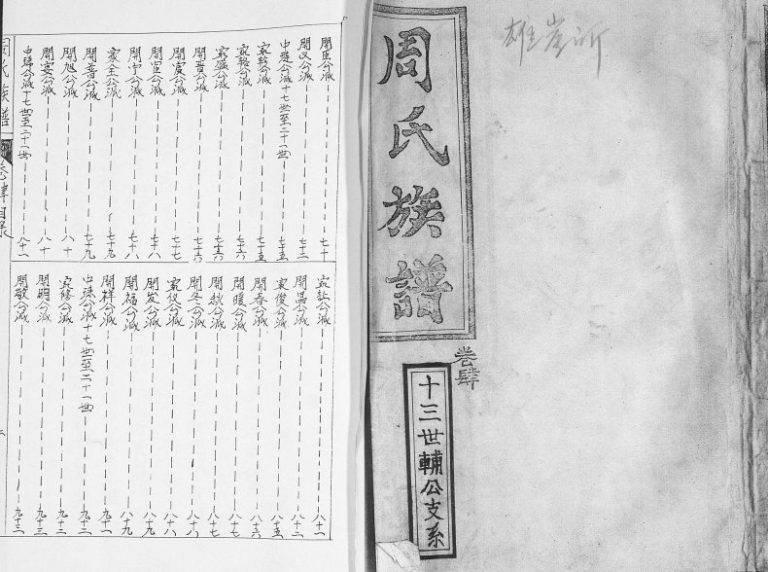 雄崖所
周氏族譜
卷肆
十三世輔公支系
開臣公派 七十
開又公派 七十二
中公派十七世至二十一世 七十五
家公派 七十五
家公派 七十六
家盛公派 七十六
開晉公派 七十六
開宸公派 七十七
開宣公派 七十八
開宁公派 七十八
家主公派 七十九
開書公派 七十九
開旭公派 八十
開雯公派 八十
中公派十七世至二十一世 八十一
家公派 八十一
開昌公派 八十二
家俊公派 八十五
開春公派 八十六
開暖公派 八十七
開秋公派 八十七
開冬公派 八十八
家仪公派 八十八
開发公派 八十九
開福公派 八十九
開祥公派 九十一
中公派十七世至二十一世 九十二
家修公派 九十二
開明公派 九十三
開敏公派 九十三
周氏族譜
卷肆目录